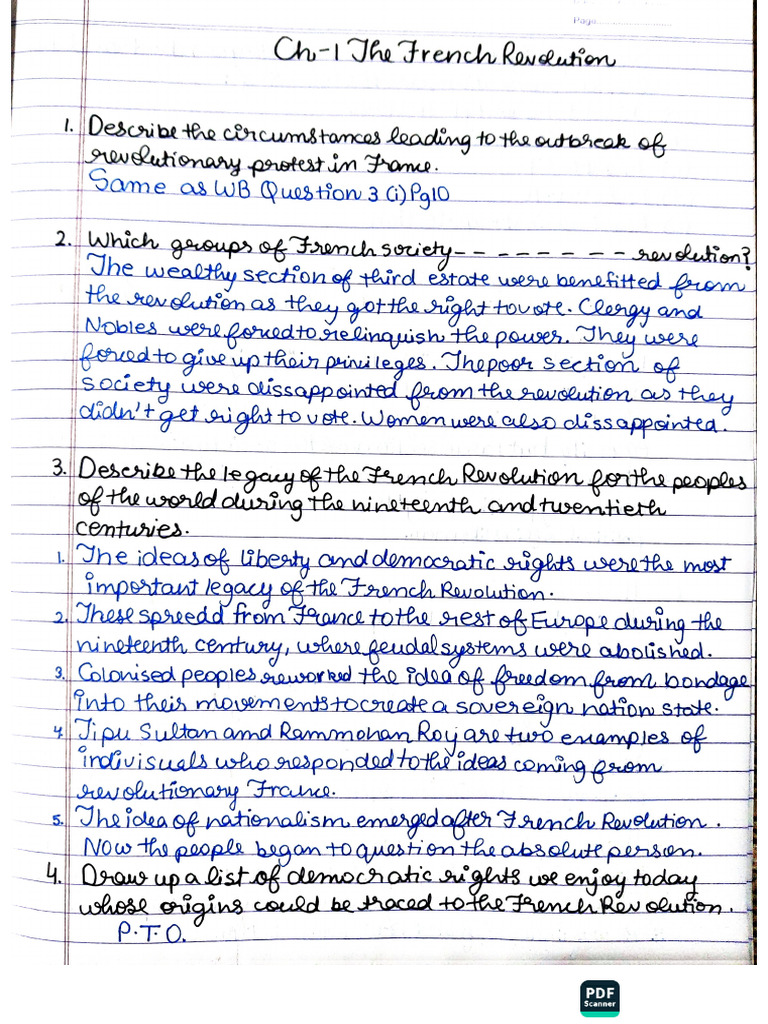 Page
Ch-1 The French Revolution
1. Describe the circumstances leading to the outbreak of
revolutionary protest in France.
Same as WB Question 3 (i) Pg10
2. Which groups of French society- - - - - - - - revolution?
The wealthy section of third estate were benefitted from
the revolution as they got the right to vote. Clergy and
Nobles were forced to relinquish the power. They were
forced to give up their privileges. The poor section of
society were dissappointed from the revolution as they
didn't get right to vote. Women were also dissappointed.
3. Describe the legacy of the French Revolution for the peoples
of the world during the nineteenth and twentieth
centuries.
1. The ideas of liberty and democratic rights were the most
important legacy of the French Revolution.
2. These spreedd from France to the rest of Europe during the
nineteenth century, where feudal systems were abolished.
3. Colonised peoples reworked the idea of freedom from bondage
into their movements to create a sovereign nation state.
4. Tipu Sultan and Rammohan Roy are two examples of
indivisuals who responded to the ideas coming from
revolutionary France.
5. The idea of nationalism emerged after French Revolution.
Now the people began to question the absolute person.
4. Draw up a list of democratic rights we enjoy today
whose origins could be traced to the French Revolution.
P.T.O.
PDF
Scanner